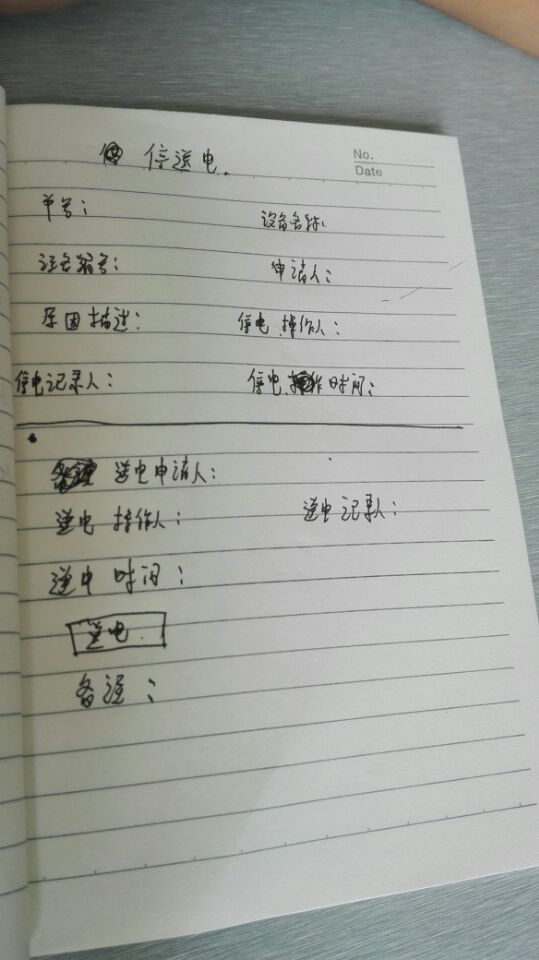 停送电.
No.
Date
单号：
设备名称：
设备编号：
申请人：
原因描述：
停电操作人：
停电记录人：
停电操作时间：
送电申请人：
送电操作人：
送电记录人：
送电时间：
送电.
备注：